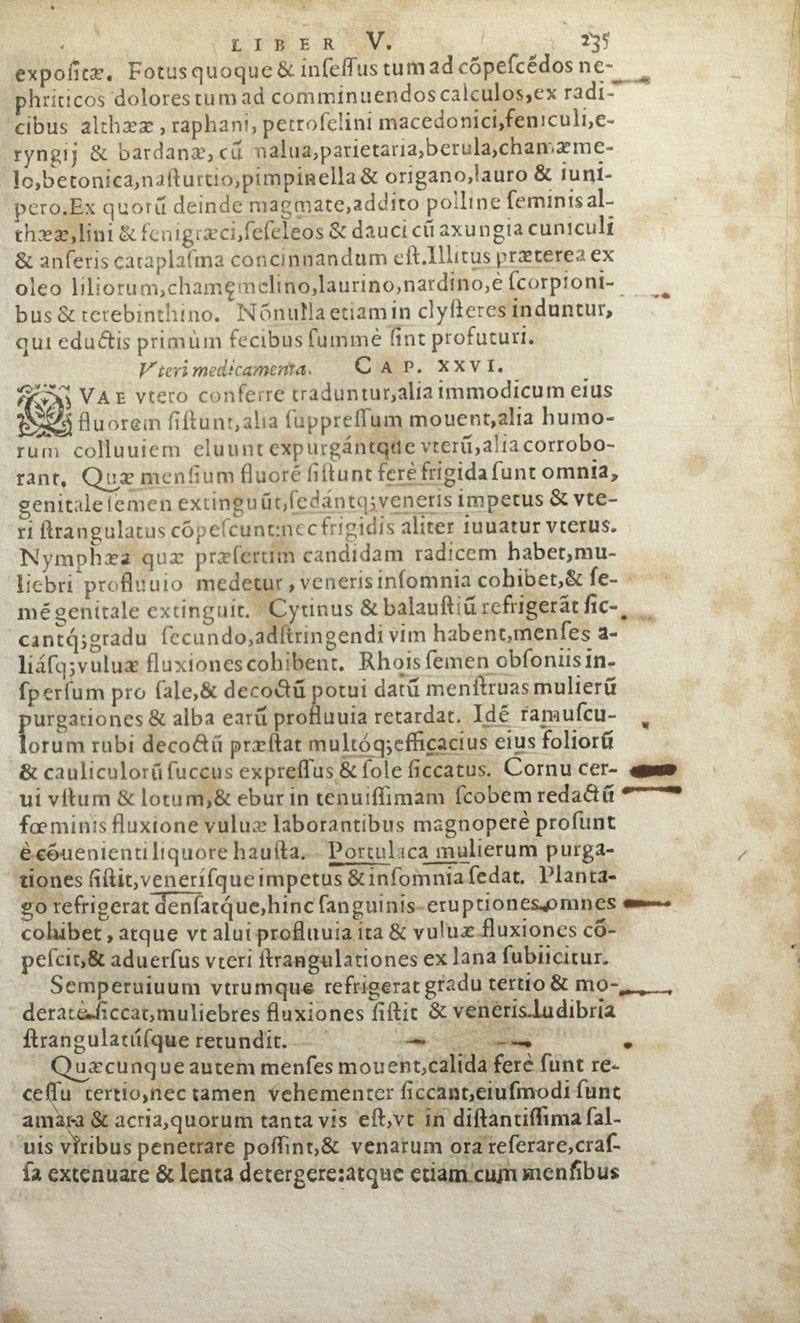 LIBER V. 235
expoſitæ. Fotus quoque & inſeſſus tum ad cõpeſcẽdos ne-
phriticos dolores tum ad comminuendos calculos,ex radi-
cibus althææ , raphani, petroſelini macedonici,feniculi,e-
ryngij & bardanæ, cũ malua,parietaria,berula,chamæme-
lo,betonica,naſturtio,pimpinella & origano,lauro & iuni-
pero.Ex quorũ deinde magmate,addito polline ſeminis al-
thææ,lini & fenigræci,ſeſeleos & dauci cũ axungia cuniculi
& anſeris cataplaſma concinnandum eſt.Illitus præterea ex
oleo liliorum,chamęmelino,laurino,nardino,è ſcorpioni-
bus & terebinthino. Nõnulla etiam in clyſteres induntur,
qui eductis primùm fecibus ſummè ſint profuturi.
Vteri medicamenta. CAP. XXVI.
QVAE vtero conferre traduntur,alia immodicum eius
fluorem ſiſtunt,alia ſuppreſſum mouent,alia humo-
rum colluuiem eluunt expurgántque vterũ,alia corrobo-
rant. Quæ menſium fluorẽ ſiſtunt ferè frigida ſunt omnia,
genitale ſemen extinguũt,ſedántq;veneris impetus & vte-
ri ſtrangulatus cõpeſcunt:nec frigidis aliter iuuatur vterus.
Nymphæa quæ præſertim candidam radicem habet,mu-
liebri profluuio medetur , veneris inſomnia cohibet,& ſe-
mẽ genitale extinguit. Cytinus & balauſtiũ refrigerãt ſic-
cantq́;gradu ſecundo,adſtringendi vim habent,menſes a-
liáſq;vuluæ fluxiones cohibent. Rhois ſemen obſoniis in-
ſperſum pro ſale,& decoctũ potui datũ menſtruas mulierũ
purgationes & alba earũ profluuia retardat. Idẽ ramuſcu-
lorum rubi decoctũ præſtat multóq;efficacius eius foliorũ
& cauliculorũ ſuccus expreſſus & ſole ſiccatus. Cornu cer-
ui vſtum & lotum,& ebur in tenuiſſimam ſcobem redactũ
fœminis fluxione vuluæ laborantibus magnoperè proſunt
è cõuenienti liquore hauſta. Portulaca mulierum purga-
tiones ſiſtit,veneríſque impetus & inſomnia ſedat. Planta-
go refrigerat denſatque,hinc ſanguinis eruptiones omnes
cohibet , atque vt alui profluuia ita & vuluæ fluxiones cõ-
peſcit,& aduerſus vteri ſtrangulationes ex lana ſubiicitur.
Semperuiuum vtrumque refrigerat gradu tertio & mo-
deratè ſiccat,muliebres fluxiones ſiſtit & veneris ludibria
ſtrangulatúſque retundit.
Quæcunque autem menſes mouent,calida ferè ſunt re-
ceſſu tertio,nec tamen vehementer ſiccant,eiuſmodi ſunt
amara & acria,quorum tanta vis eſt,vt in diſtantiſſima ſal-
uis viribus penetrare poſſint,& venarum ora reſerare,craſ-
ſa extenuare & lenta detergere:atque etiam cum menſibus